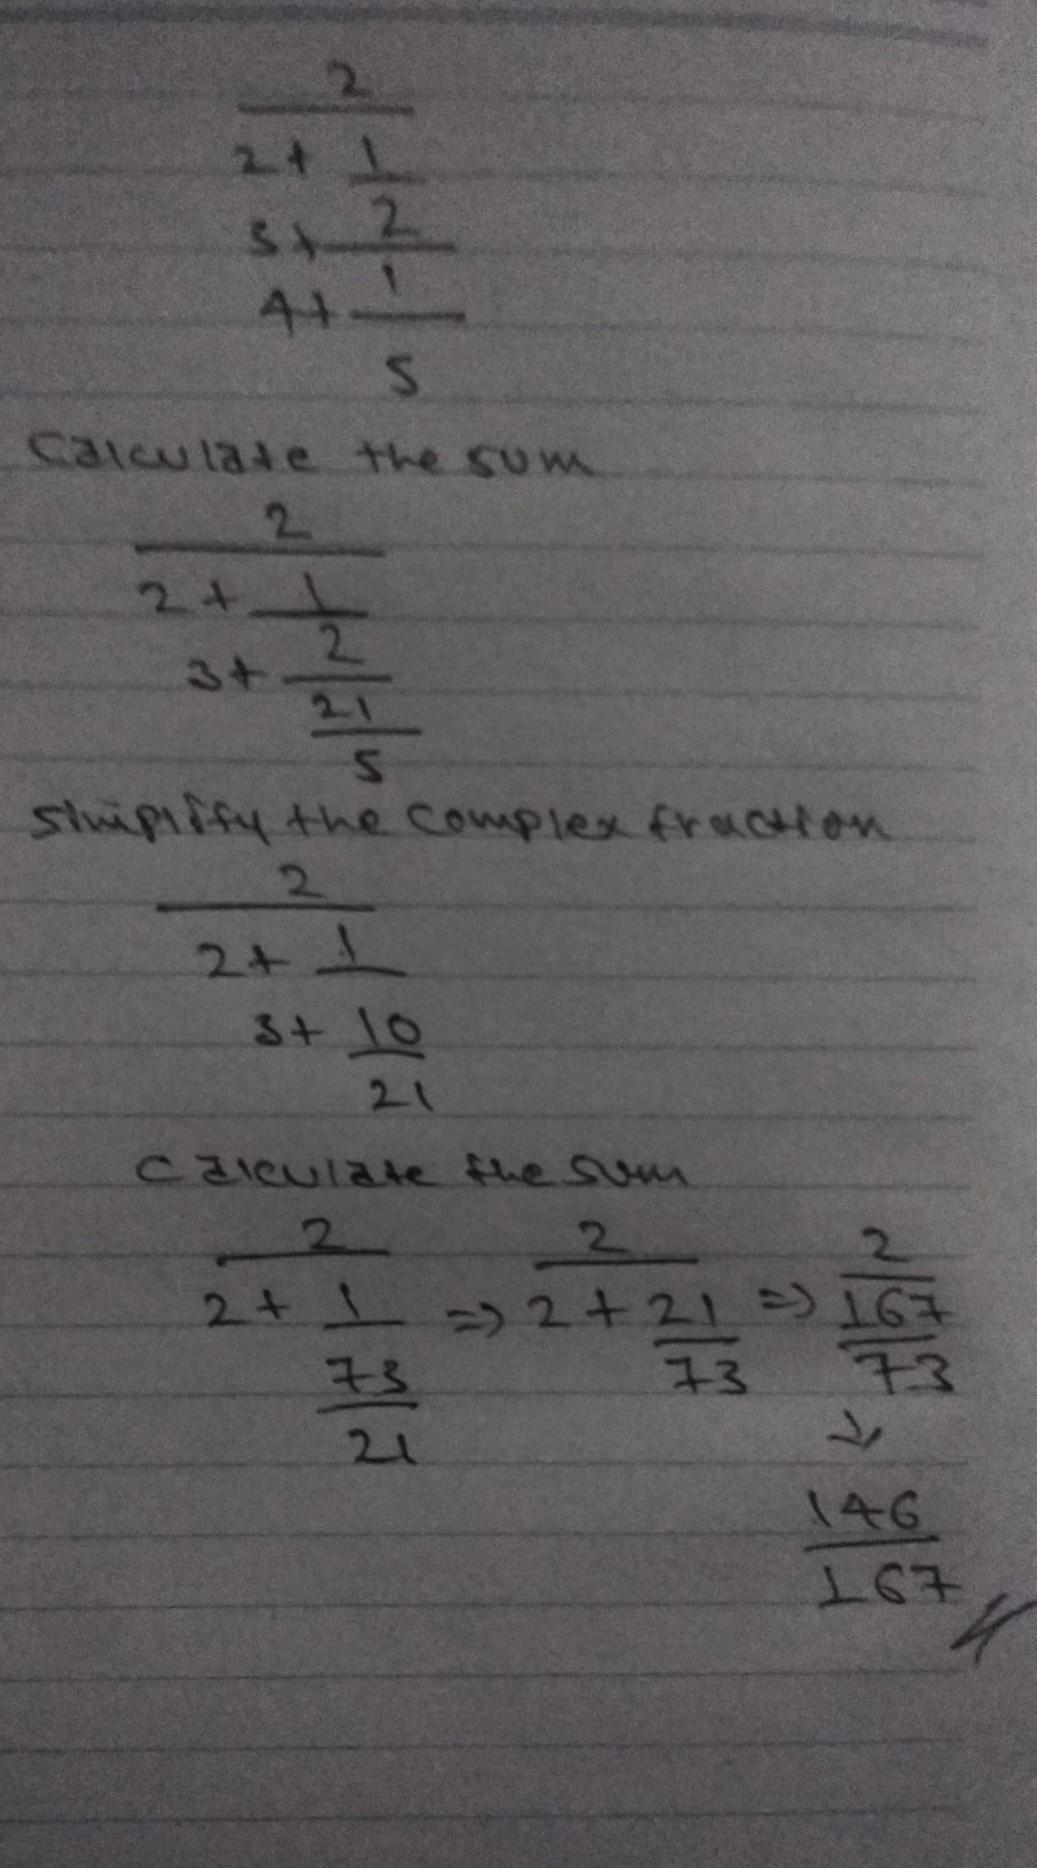 2
2+ 1
3+ 2
4+ 1
5
Calculate the sum
2
2+ 1
3+ 2
21
5
Simplify the complex fraction
2
2+ 1
3+ 10
21
Calculate the sum
2 2 2
2+ 1 => 2+ 21 => 167
73 73 73
21 ↓
146
167